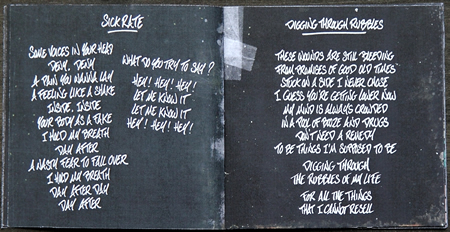 SICK RATE
SOME VOICES IN YOUR HEAD
DENY, DENY
A PAIN YOU WANNA LAY
A FEELING LIKE A SHAKE
INSIDE, INSIDE
YOUR BODY AS A FAKE
I HOLD MY BREATH
DAY AFTER
A NASTY FEAR TO FALL OVER
I HOLD MY BREATH
DAY AFTER DAY
DAY AFTER
WHAT DO YOU TRY TO SAY?
HEY! HEY! HEY!
LET ME KNOW IT
LET ME KNOW IT
HEY! HEY! HEY!
DIGGING THROUGH RUBBLES
THESE WOUNDS ARE STILL BLEEDING
FROM PROMISES OF GOOD OLD TIMES
STUCK ON A SIDE I NEVER CHOSE
I GUESS YOU'RE GETTING LOWER NOW
MY MIND IS ALWAYS CROWDED
IN A POOL OF BOOZE AND DRUGS
DON'T NEED A REMEDY
TO BE THINGS I'M SUPPOSED TO BE
DIGGING THROUGH
THE RUBBLES OF MY LIFE
FOR ALL THE THINGS
THAT I CANNOT RESELL